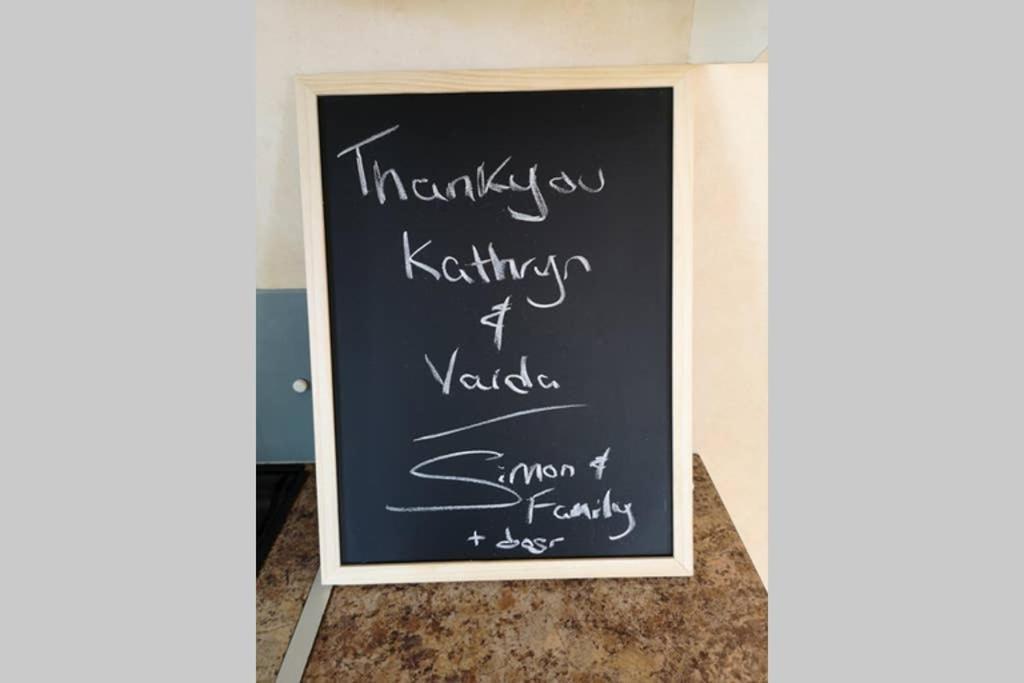 Thankyou
Kathryn
&
Vaida
Simon &
Family
+